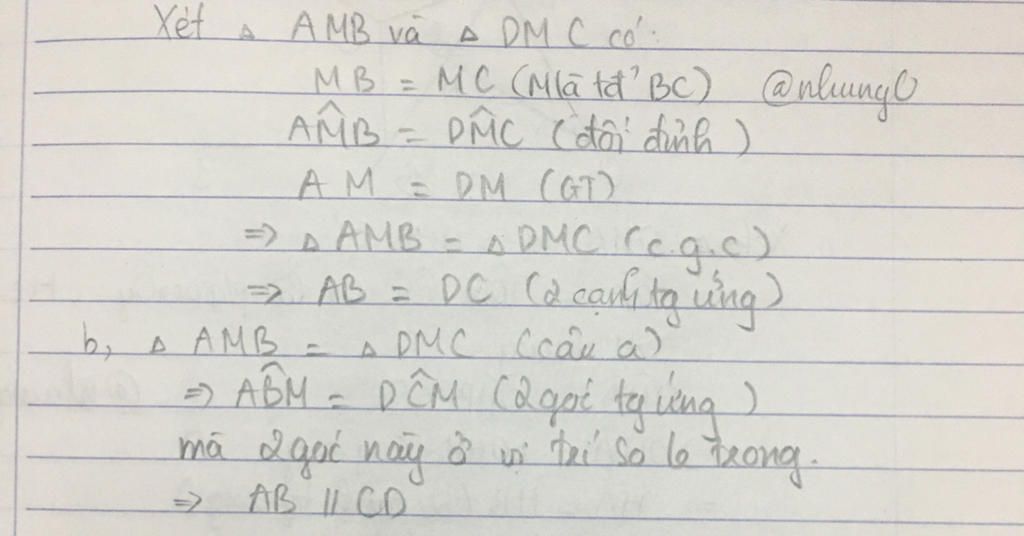 Xét △ AMB và △ DMC có:
MB = MC (M là tđ' BC) @nhungQ
AM̂B = DM̂C (đối đỉnh)
AM = DM (GT)
=> △ AMB = △ DMC (c.g.c)
=> AB = DC (2 cạnh tg ứng)
b, △ AMB = △ DMC (câu a)
=> AB̂M = DĈM (2 góc tg ứng)
mà 2 góc này ở vị trí so le trong.
=> AB // CD